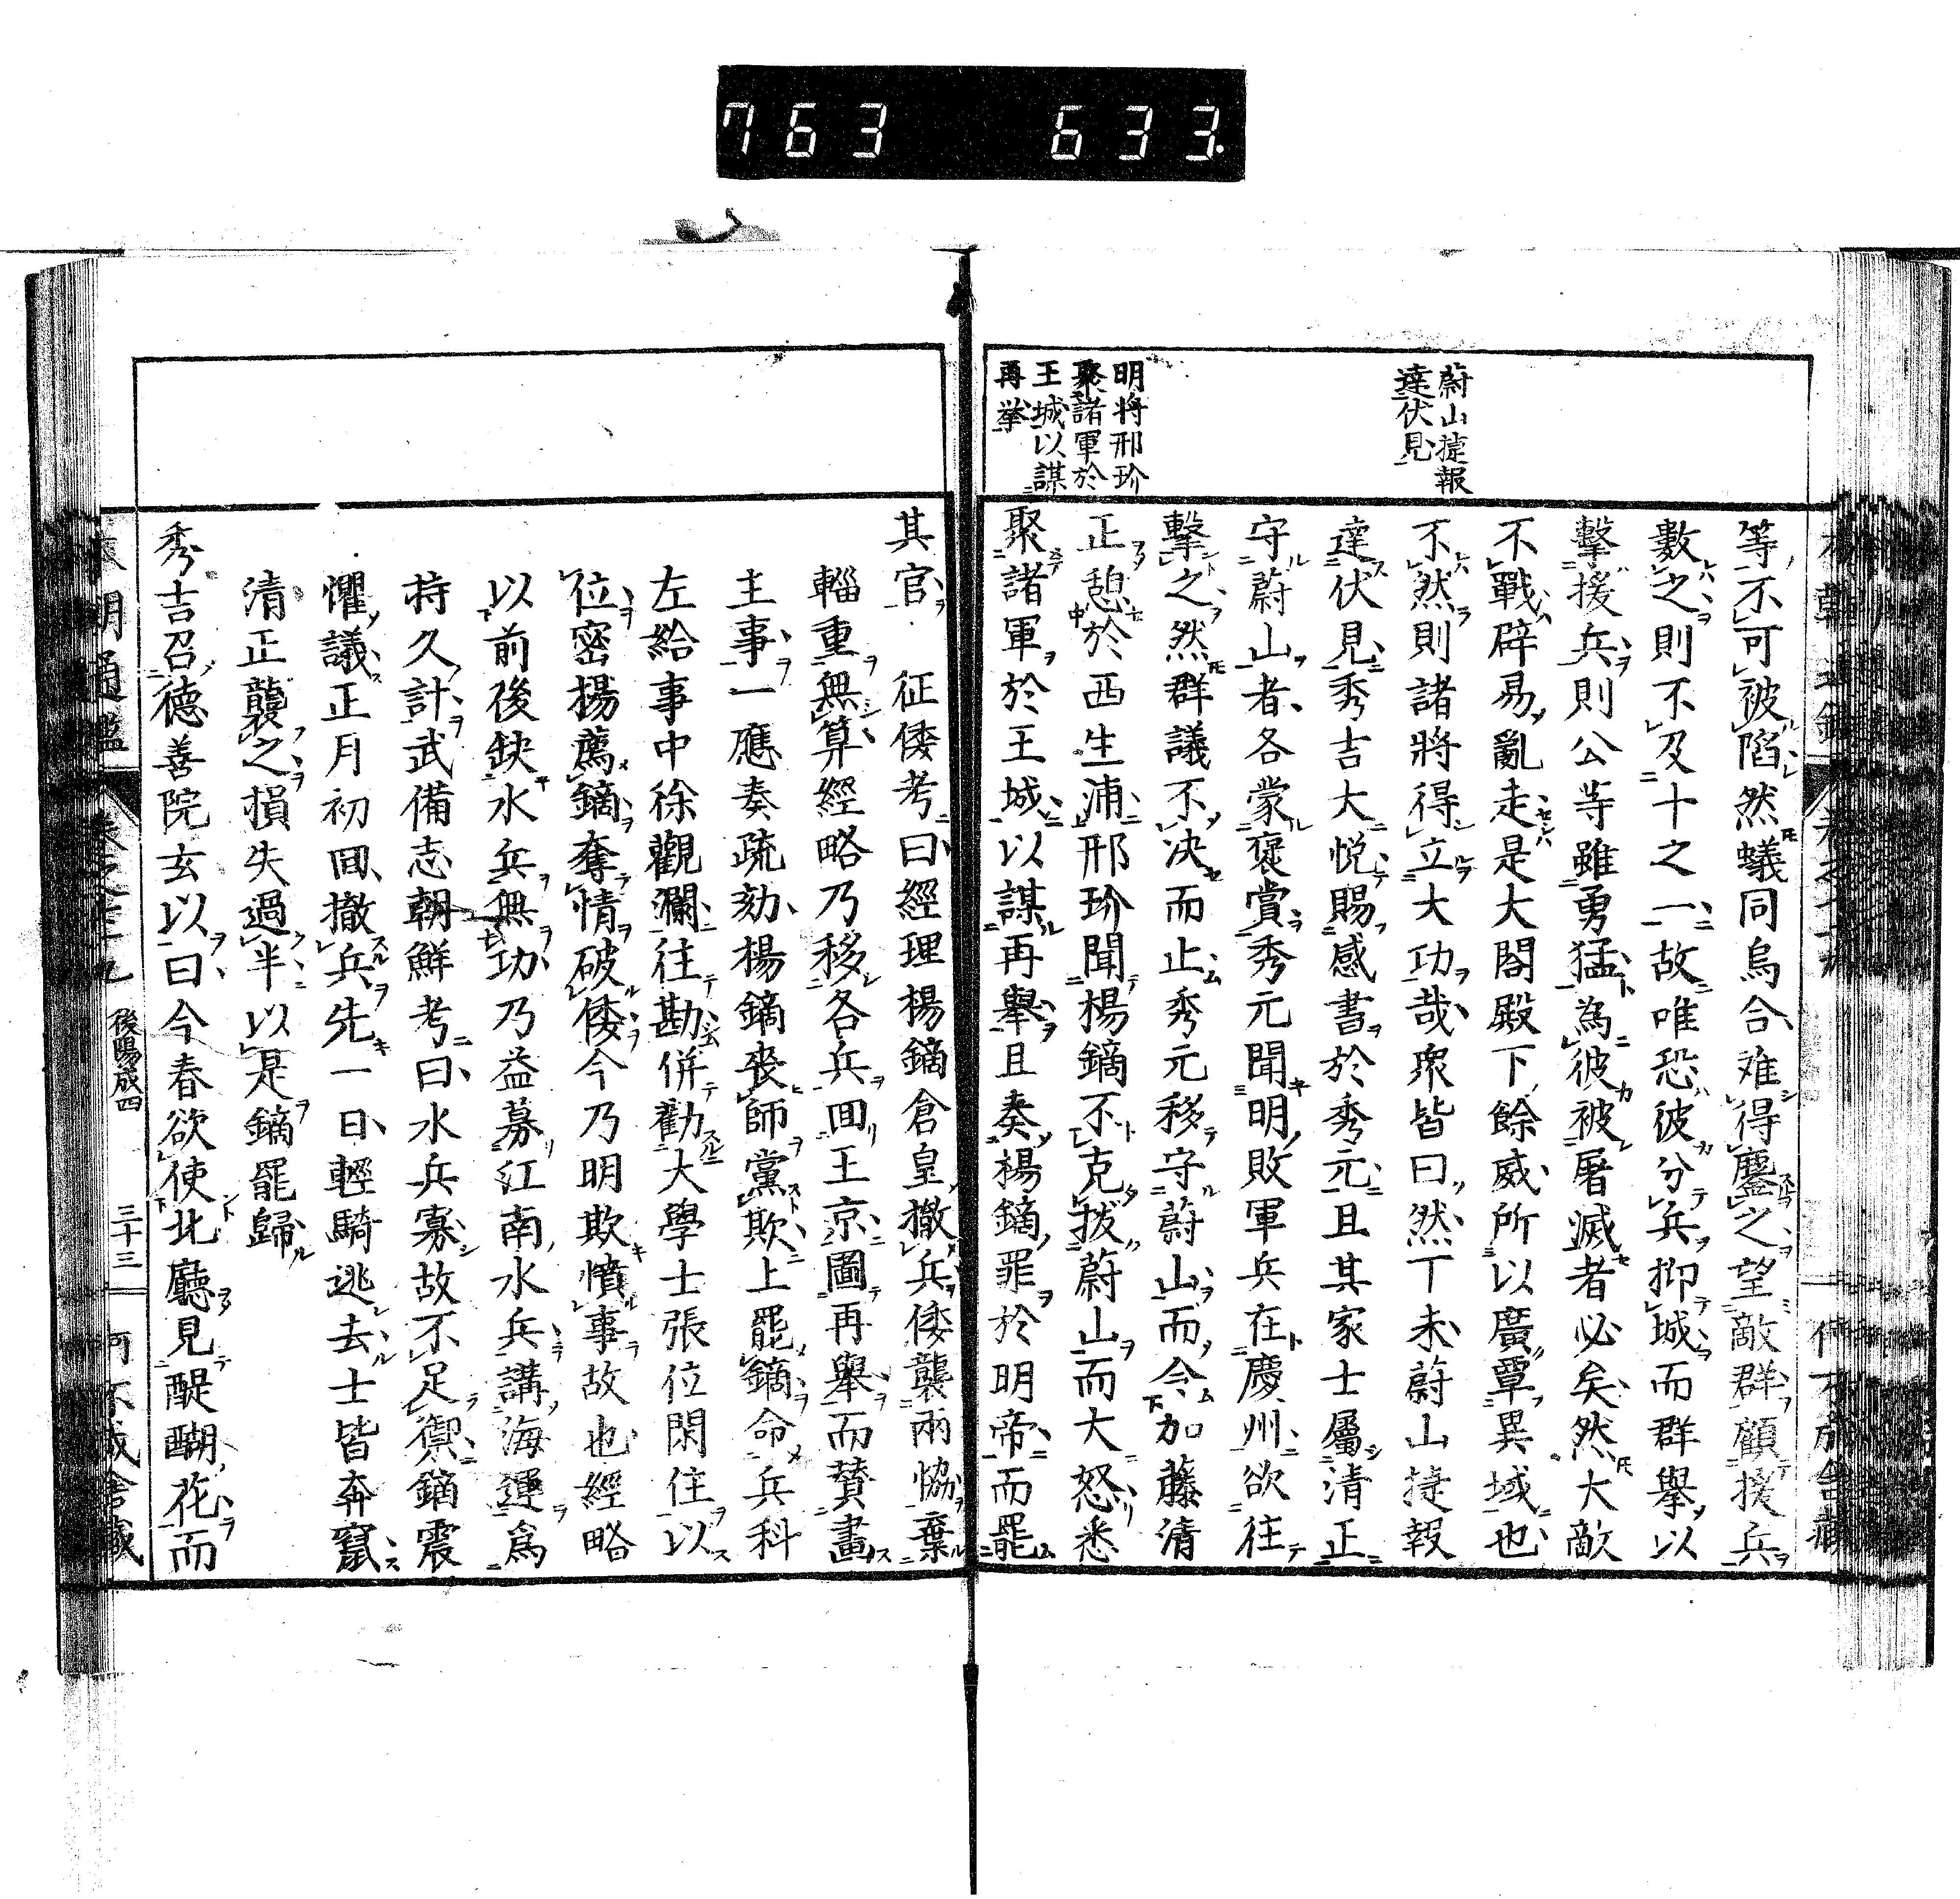 763 633.
蔚山捷報
達伏見
明将邢玠
聚諸軍於
王城以謀
再挙
等不可被陷然蟻同烏合难得鏖之望敵群顧援兵
數之則不及十之一故唯恐彼分兵抑城而群擧以
擊援兵則公等雖勇猛為彼被屠滅者必矣然大敵
不戰辟易亂走是大閤殿下餘威所以廣覃異域也
不然則諸將得立大功哉衆皆曰然丁未蔚山捷報
達伏見秀吉大悅賜感書於秀元且其家士屬清正
守蔚山者各蒙褒賞秀元聞明敗軍兵在慶州欲往
擊之然群議不决而止秀元移守蔚山而令加藤清
正憩於西生浦邢玠聞楊鏑不克拔蔚山而大怒悉
聚諸軍於王城以謀再擧且奏楊鏑罪於明帝而罷
其官 征倭考曰經理楊鏑倉皇撤兵倭襲兩恊棄
輜重無算經略乃移各兵囬王京圖再舉而賛畫
主事一應奏疏劾楊鏑丧師黨欺上罷鏑命兵科
左給事中徐觀瀾往勘併勸大學士張位閑住以
位密揚薦鏑奪情破倭今乃明欺憤事故也經略
以前後缺水兵無功乃益募江南水兵講海運爲
持久計武備志朝鮮考曰水兵寡故不足禦鏑震
懼議正月初囬撤兵先一日輕騎逃去士皆奔竄
清正襲之損失過半以是鏑罷歸
秀吉召德善院玄以曰今春欲使北廳見醍醐花而
後陽成四
三十三